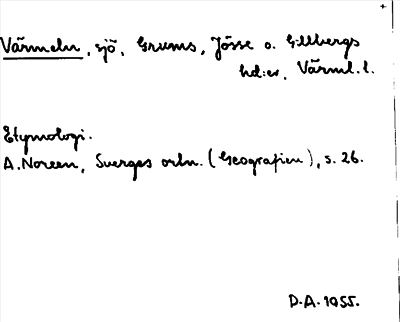 Värmeln, sjö, Grums, Jösse o. Gillbergs
hd:er, Värml. l.
Etymologi.
A. Noreen, Sverges ortn. (Geografien), s. 26.
D.A. 1955.